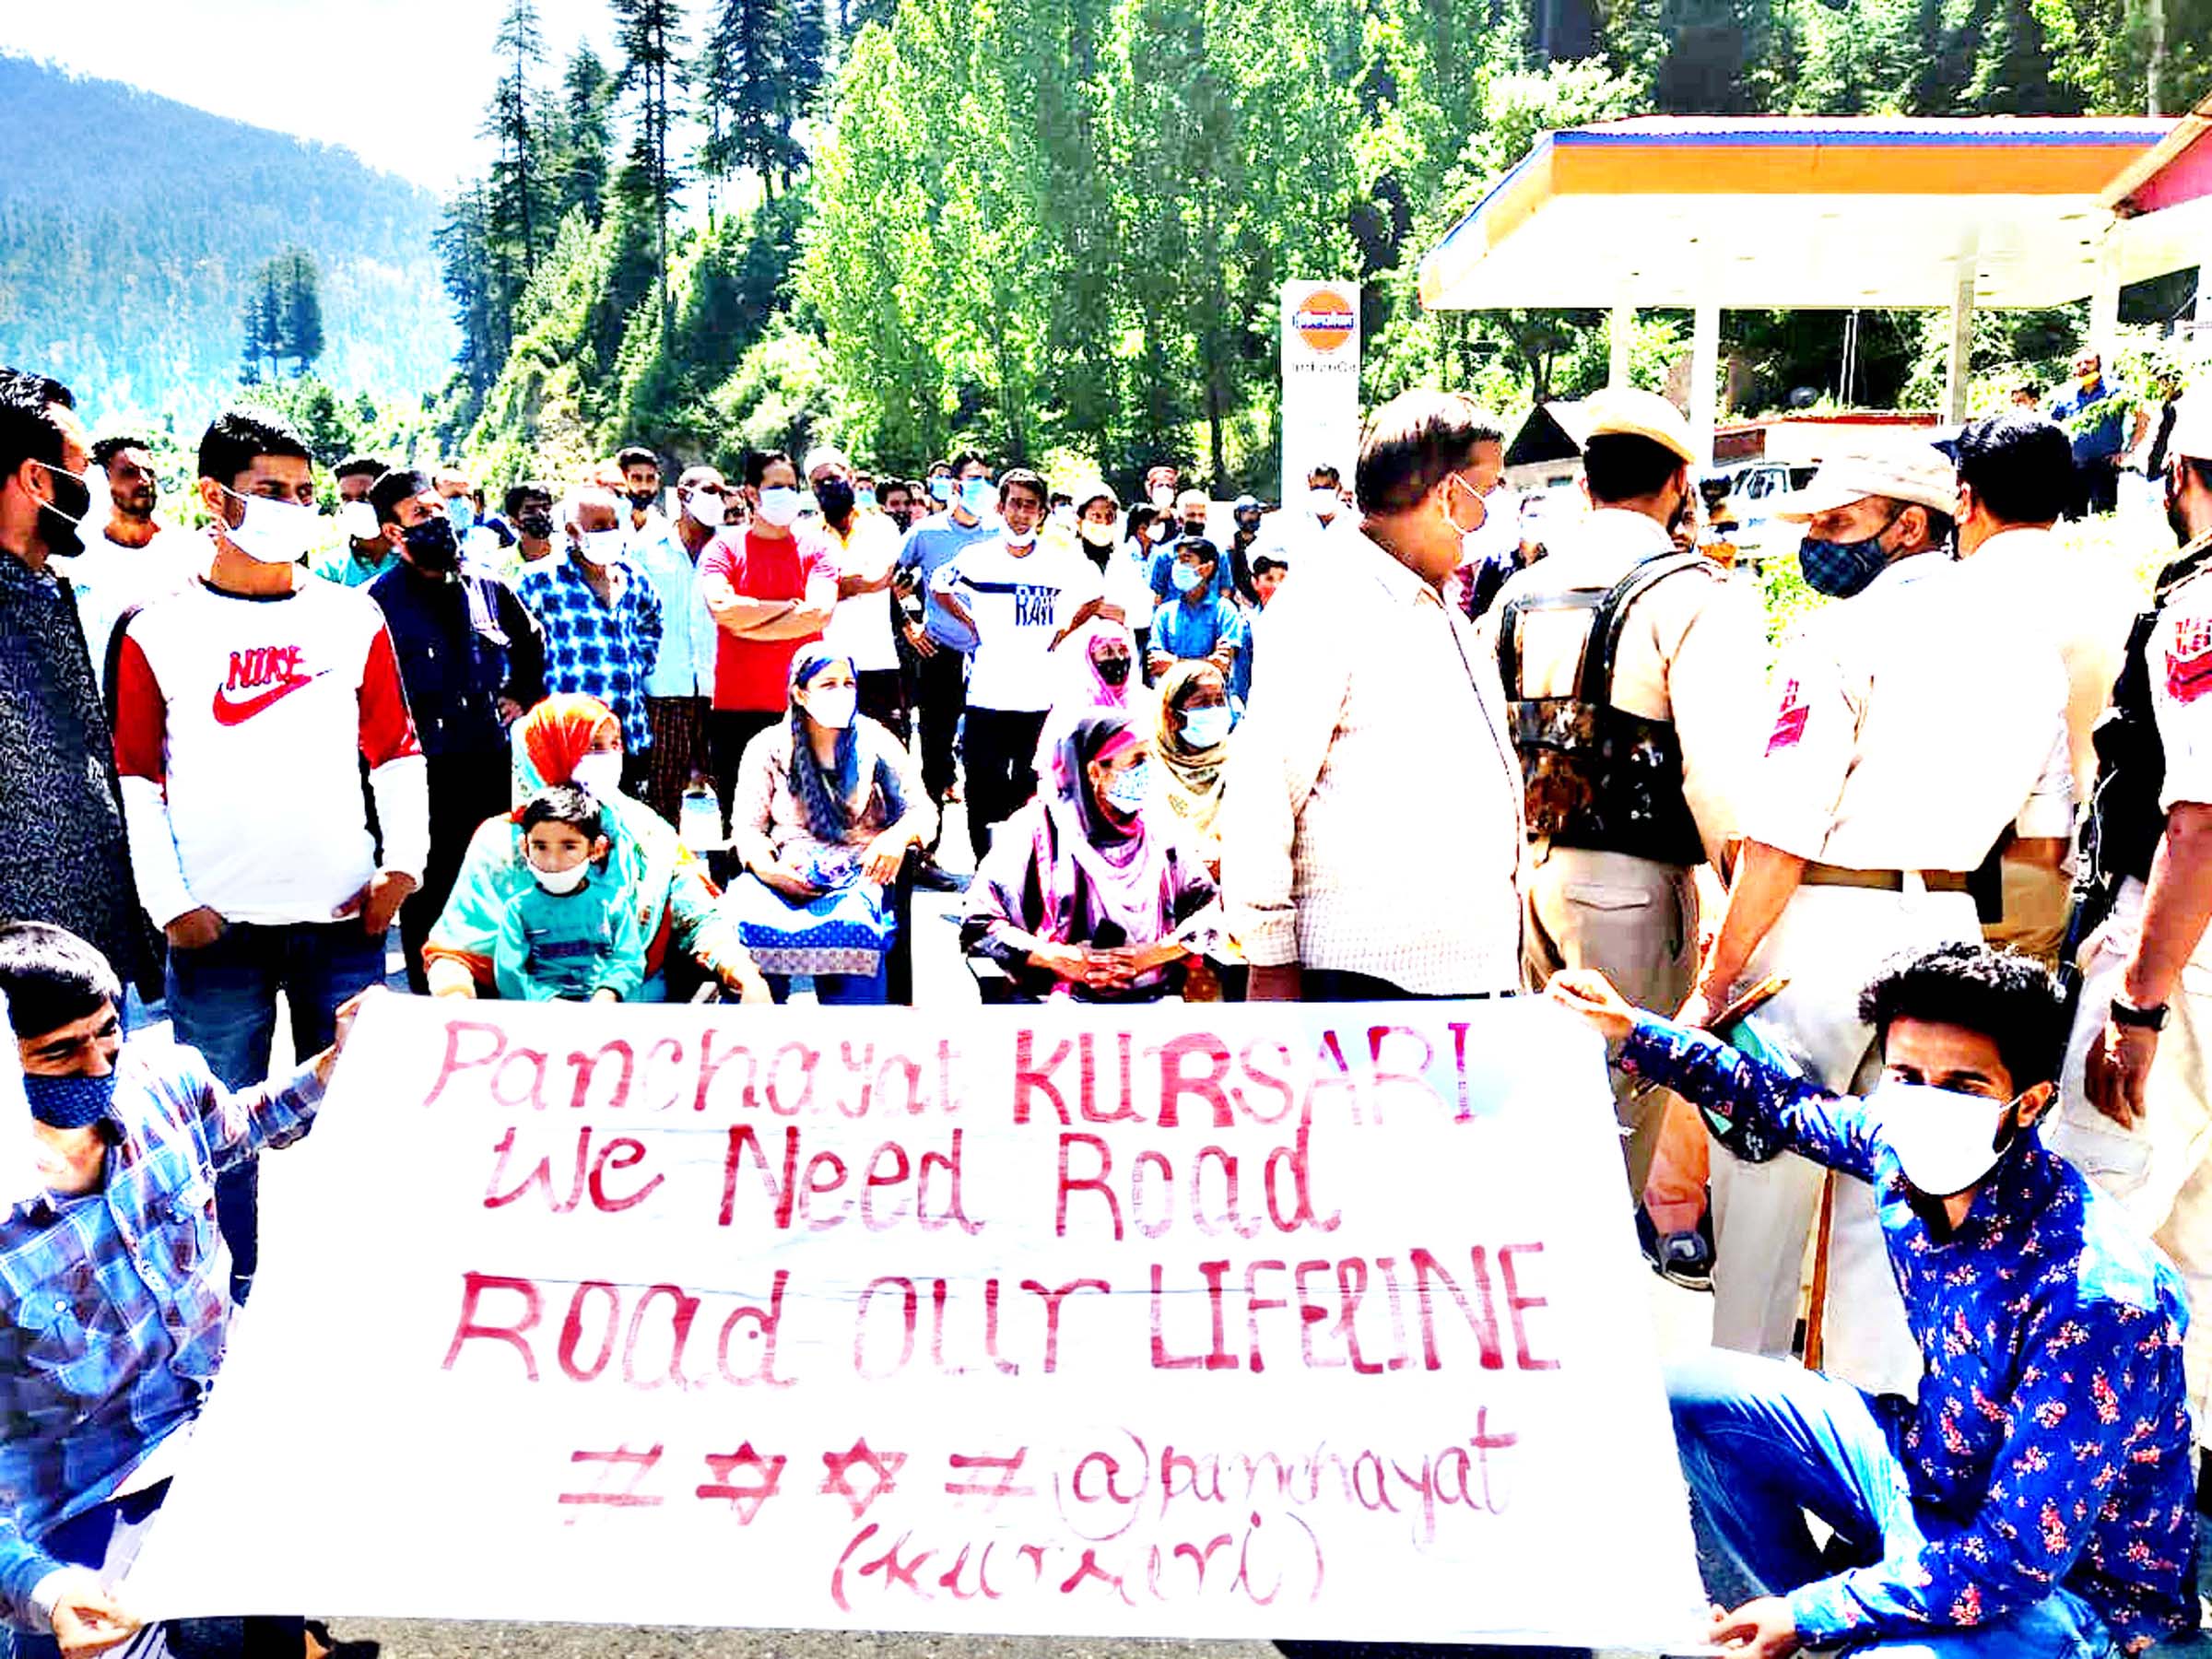 IndianOil
NIKE
RAW
Panchayat KURSARI
We Need Road
Road our LIFELINE
# ✡ ✡ # @panchayat
(kursari)